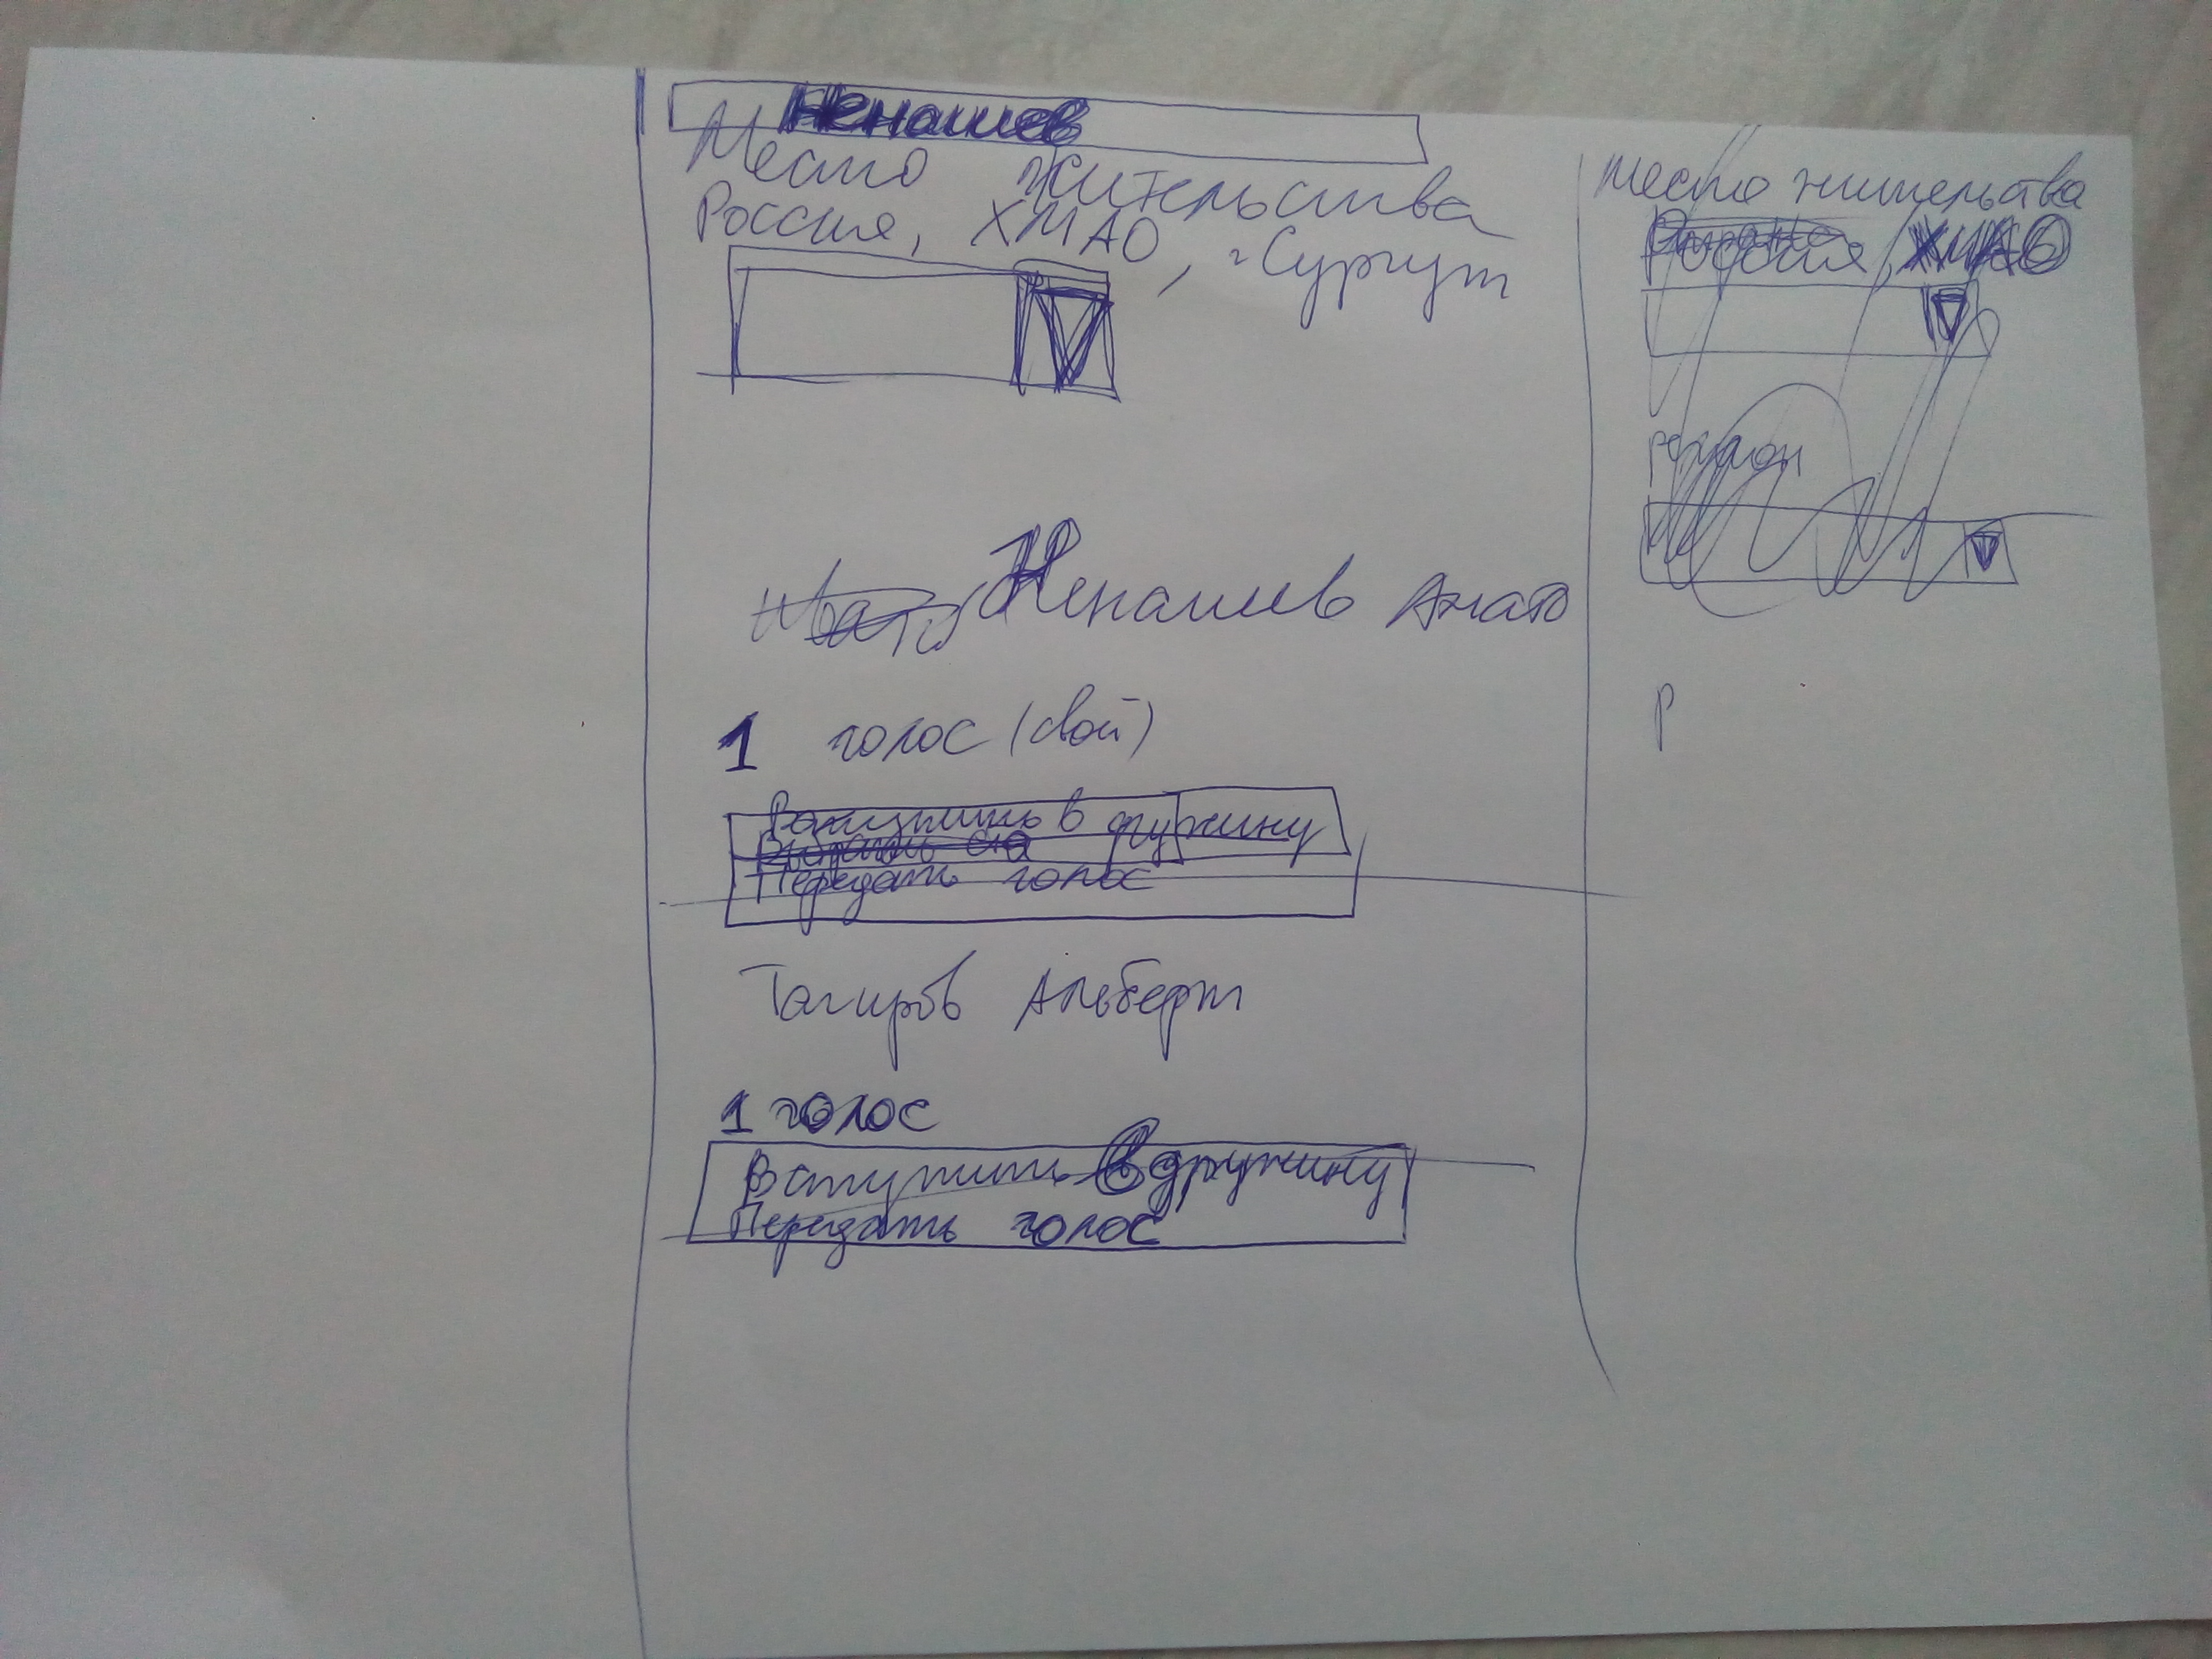 Ненашев
Место жительства
Россия, ХМАО, г Сургут
Ненашев Анато
1 голос (свой)
в дружину
Передать голос
Тагиров Альберт
1 голос
Вступить в дружину
Передать голос
Место жительства
Россия, ХМАО
регион
Р